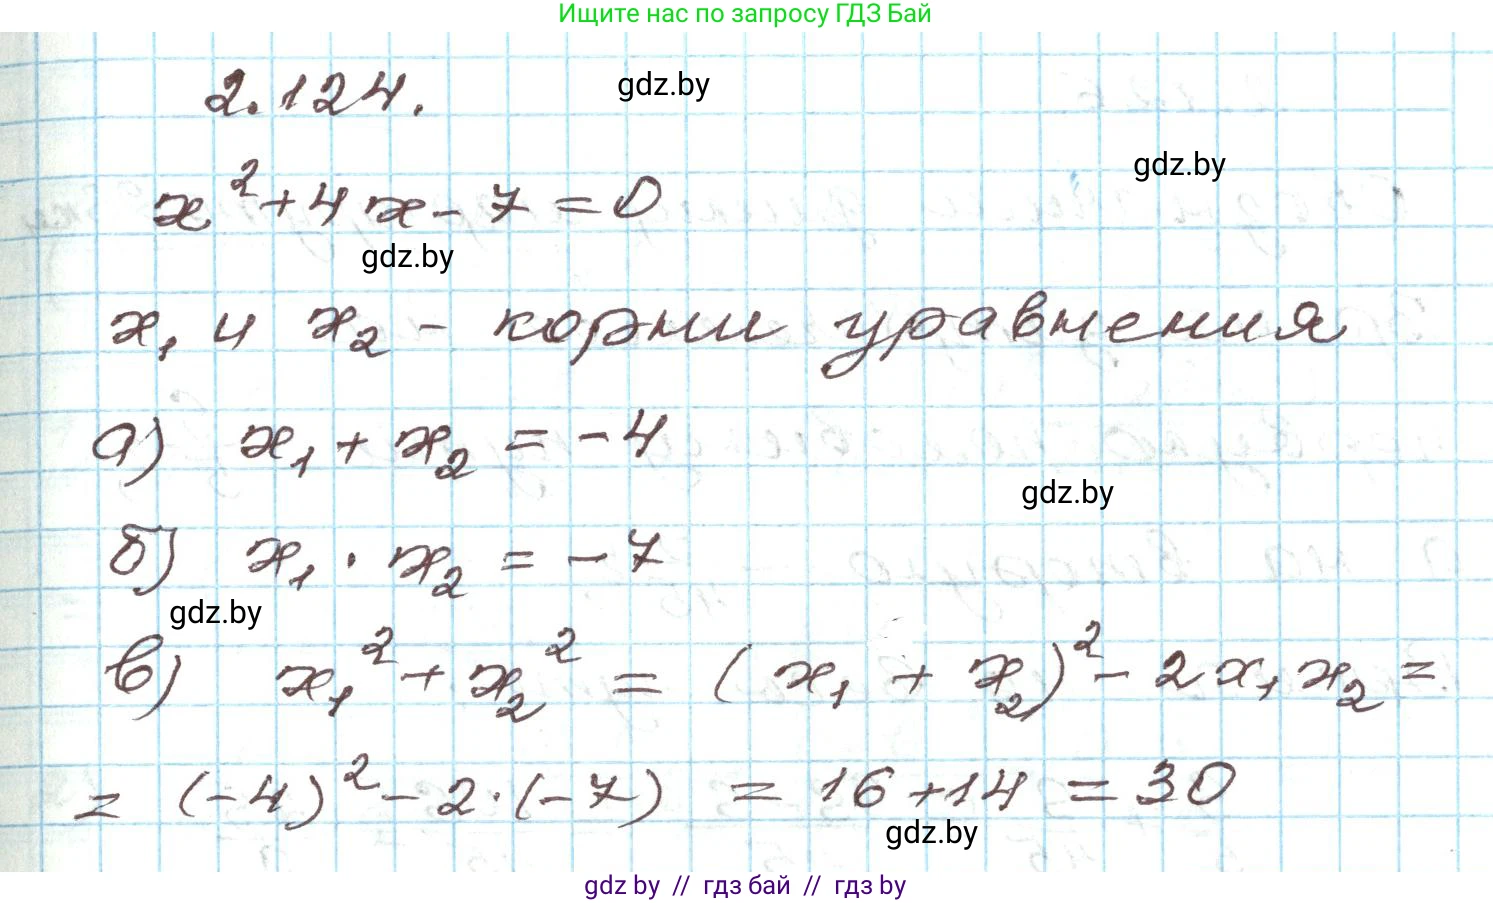 Ищите нас по запросу ГДЗ Бай
2.124.
gdz.by
gdz.by
x² + 4x - 7 = 0
gdz.by
x₁ и x₂ - корни уравнения
а) x₁ + x₂ = -4
gdz.by
б) x₁ · x₂ = -7
gdz.by
в) x₁² + x₂² = (x₁ + x₂)² - 2x₁x₂ =
= (-4)² - 2·(-7) = 16 + 14 = 30
gdz.by
gdz by // гдз бай // гдз by